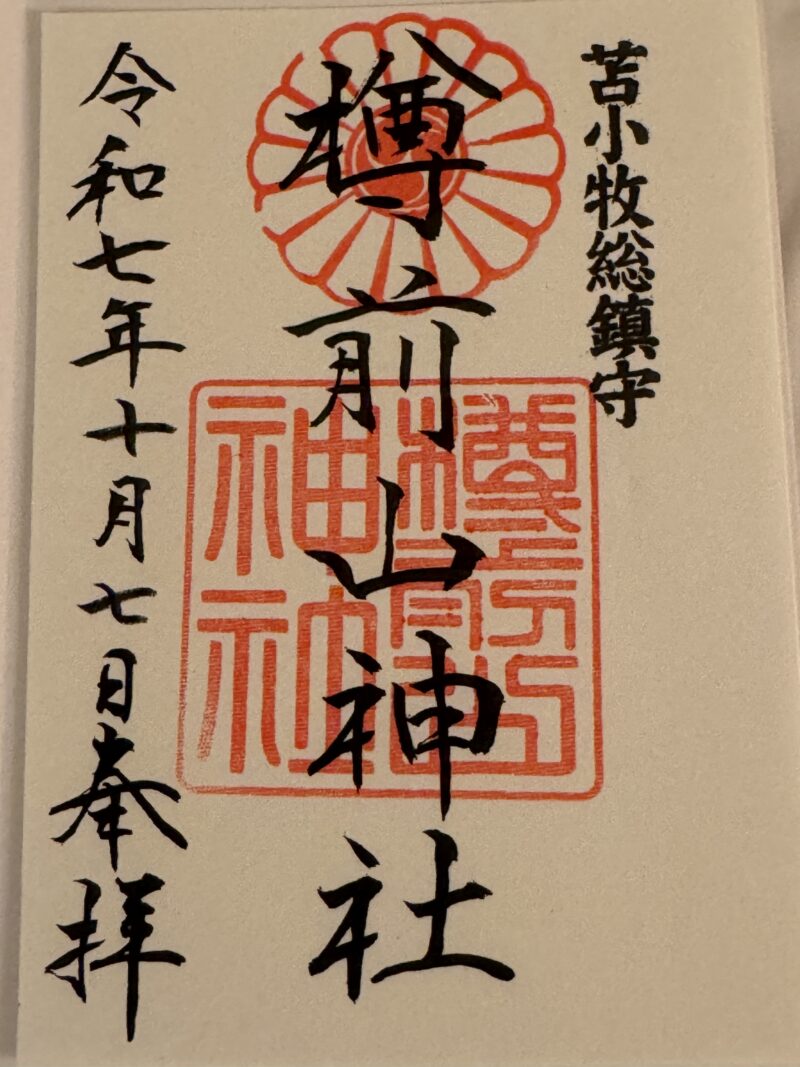 苫小牧総鎮守
樽前山神社
樽前山神社
令和七年十月七日奉拝